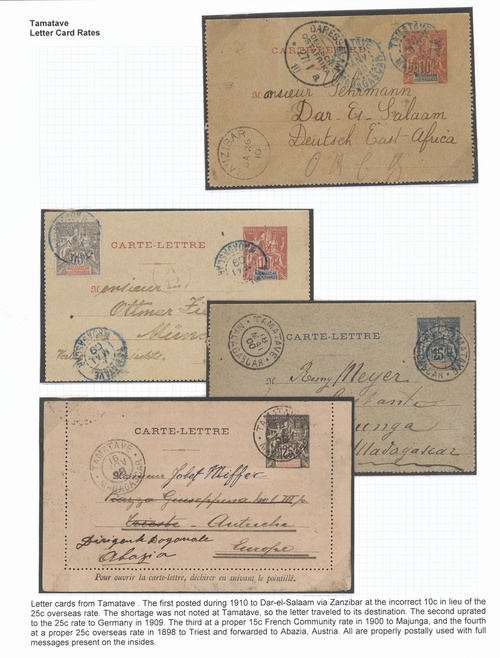 Tamatave
Letter Card Rates
DARESSALAM
CARTE-LETTRE
TAMATAVE
10
Monsieur Sehrmann
Dar-Es-Salaam
Deutsch East-Africa
ZANZIBAR
JA 26
10
CARTE-LETTRE
Monsieur
Ottmar
CARTE-LETTRE
TAMATAVE
MADAGASCAR
25
M. Remy Meyer
Madagascar
CARTE-LETTRE
TAMATAVE
MADAGASCAR
25
Monsieur Jobet Miffer
Piazza Giuseppina
Trieste - Autriche
Europe
Dirigente Doganale
Abazia
Pour ouvrir la carte-lettre, déchirer en suivant le pointillé.
Letter cards from Tamatave . The first posted during 1910 to Dar-el-Salaam via Zanzibar at the incorrect 10c in lieu of the
25c overseas rate. The shortage was not noted at Tamatave, so the letter traveled to its destination. The second uprated
to the 25c rate to Germany in 1909. The third at a proper 15c French Community rate in 1900 to Majunga, and the fourth
at a proper 25c overseas rate in 1898 to Triest and forwarded to Abazia, Austria. All are properly postally used with full
messages present on the insides.